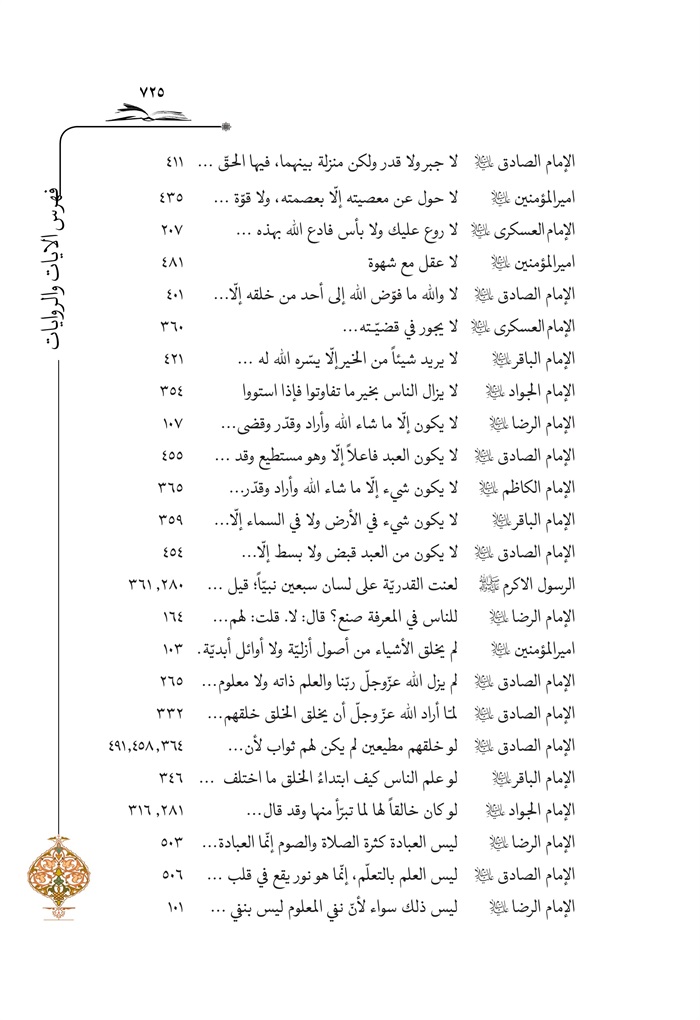 ٧٢٥
فهرس الآيات والروايات
الإمام الصادق ﵇ لا جبر ولا قدر ولكن منزلة بينهما، فيها الحقّ ... ٤١١
اميرالمؤمنين ﵇ لا حول عن معصيته إلّا بعصمته، ولا قوّة ... ٤٣٥
الإمام العسكرى ﵇ لا روع عليك ولا بأس فادع الله بهذه ... ٢٠٧
اميرالمؤمنين ﵇ لا عقل مع شهوة ٤٨١
الإمام الصادق ﵇ لا والله ما فوّض الله إلى أحد من خلقه إلّا... ٤٠١
الإمام العسكرى ﵇ لا يجور في قضيّته... ٣٦٠
الإمام الباقر ﵇ لا يريد شيئاً من الخير إلّا يسّره الله له ... ٤٢١
الإمام الجواد ﵇ لا يزال الناس بخير ما تفاوتوا فإذا استووا ٣٥٤
الإمام الرضا ﵇ لا يكون إلّا ما شاء الله وأراد وقدّر وقضى... ١٠٧
الإمام الصادق ﵇ لا يكون العبد فاعلاً إلّا وهو مستطيع وقد ... ٤٥٥
الإمام الكاظم ﵇ لا يكون شيء إلّا ما شاء الله وأراد وقدّر... ٣٦٥
الإمام الباقر ﵇ لا يكون شيء في الأرض ولا في السماء إلّا... ٣٥٩
الإمام الصادق ﵇ لا يكون من العبد قبض ولا بسط إلّا... ٤٥٤
الرسول الاكرم ﷺ لعنت القدريّة على لسان سبعين نبيّاً؛ قيل ... ٢٨٠, ٣٦١
الإمام الرضا ﵇ للناس في المعرفة صنع؟ قال: لا. قلت: لهم... ١٦٤
اميرالمؤمنين ﵇ لم يخلق الأشياء من أصول أزليّة ولا أوائل أبديّة. ١٠٣
الإمام الصادق ﵇ لم يزل الله عزّوجلّ ربّنا والعلم ذاته ولا معلوم... ٢٦٥
الإمام الصادق ﵇ لمّا أراد الله عزّوجلّ أن يخلق الخلق خلقهم... ٣٣٢
الإمام الصادق ﵇ لو خلقهم مطيعين لم يكن لهم ثواب لأن... ٣٦٤, ٤٥٨, ٤٩١
الإمام الباقر ﵇ لو علم الناس كيف ابتداءُ الخلق ما اختلف ... ٣٤٦
الإمام الجواد ﵇ لو كان خالقاً لها لما تبرّأ منها وقد قال... ٢٨١, ٣١٦
الإمام الرضا ﵇ ليس العبادة كثرة الصلاة والصوم إنّما العبادة... ٥٠٣
الإمام الصادق ﵇ ليس العلم بالتعلّم، إنّما هو نور يقع في قلب ... ٥٠٦
الإمام الرضا ﵇ ليس ذلك سواء لأنّ نفي المعلوم ليس بنفي ... ١٠١